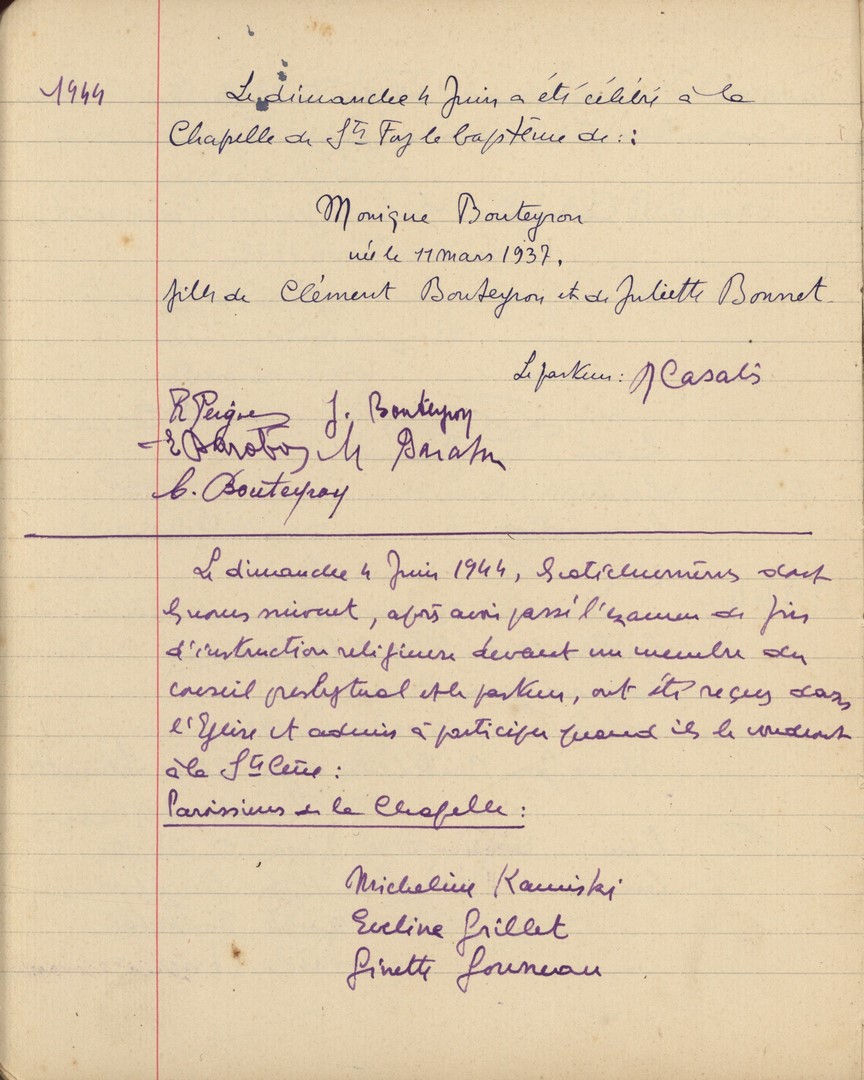 1944
Le dimanche 4 Juin a été célébré à la
Chapelle de Ste Foy le baptême de :
Monique Bouteyron
née le 11 mars 1937,
fille de Clément Bouteyron et de Juliette Bonnet
Le pasteur : Casalis
R Peigne J. Bouteyron
M
C. Bouteyron
Le dimanche 4 Juin 1944, les catéchumènes dont
les noms suivent, après avoir passé l'examen de fin
d'instruction religieuse devant un membre du
conseil presbytéral et le pasteur, ont été reçus dans
l'Eglise et admis à participer quand ils le voudront
à la Ste Cène :
Paroissiens de la Chapelle :
Micheline Kaminski
Eveline Grillet
Ginette Gouneau